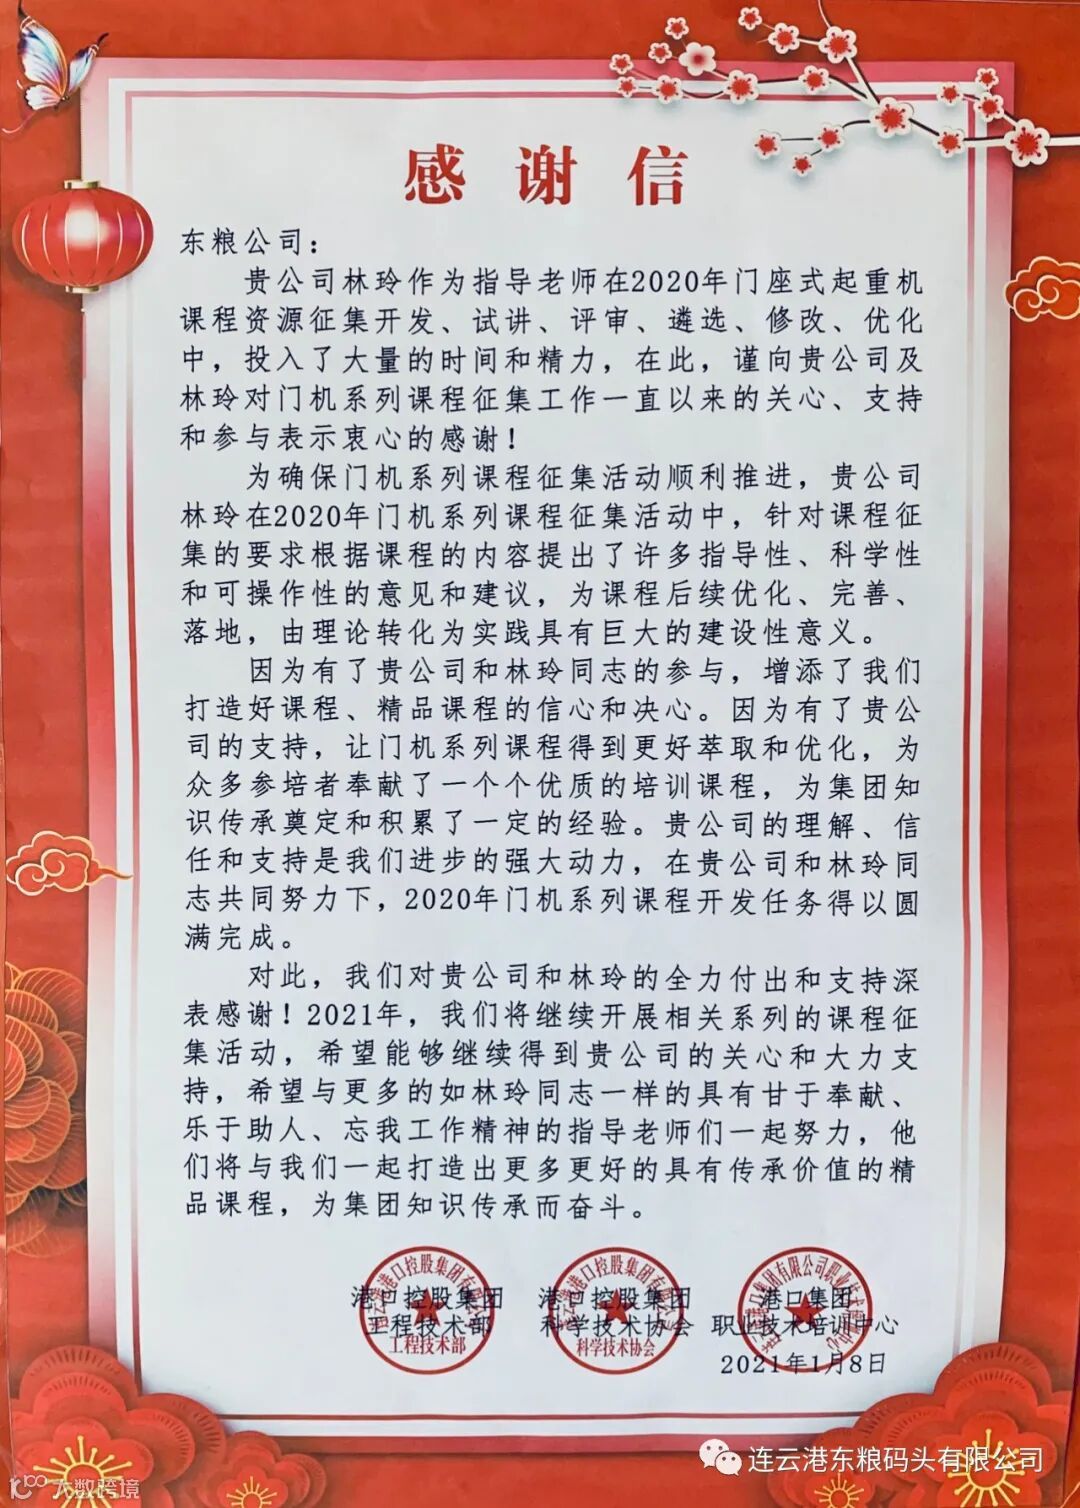 感谢信
东粮公司：
贵公司林玲作为指导老师在2020年门座式起重机
课程资源征集开发、试讲、评审、遴选、修改、优化
中，投入了大量的时间和精力，在此，谨向贵公司及
林玲对门机系列课程征集工作一直以来的关心、支持
和参与表示衷心的感谢！
为确保门机系列课程征集活动顺利推进，贵公司
林玲在2020年门机系列课程征集活动中，针对课程征
集的要求根据课程的内容提出了许多指导性、科学性
和可操作性的意见和建议，为课程后续优化、完善、
落地，由理论转化为实践具有巨大的建设性意义。
因为有了贵公司和林玲同志的参与，增添了我们
打造好课程、精品课程的信心和决心。因为有了贵公
司的支持，让门机系列课程得到更好萃取和优化，为
众多参培者奉献了一个个优质的培训课程，为集团知
识传承奠定和积累了一定的经验。贵公司的理解、信
任和支持是我们进步的强大动力，在贵公司和林玲同
志共同努力下，2020年门机系列课程开发任务得以圆
满完成。
对此，我们对贵公司和林玲的全力付出和支持深
表感谢！2021年，我们将继续开展相关系列的课程征
集活动，希望能够继续得到贵公司的关心和大力支
持，希望与更多的如林玲同志一样的具有甘于奉献、
乐于助人、忘我工作精神的指导老师们一起努力，他
们将与我们一起打造出更多更好的具有传承价值的精
品课程，为集团知识传承而奋斗。
港口控股集团 港口控股集团 港口集团
工程技术部 科学技术协会 职业技术培训中心
工程技术部 科学技术协会
2021年1月8日
连云港东粮码头有限公司
大数跨境